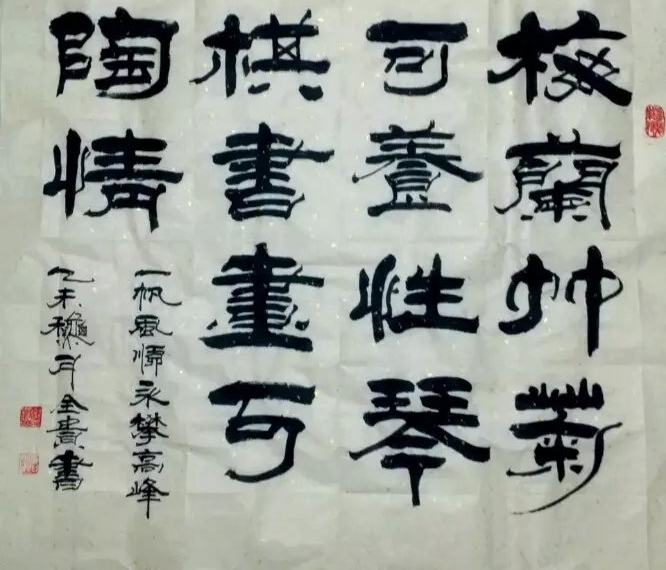 梅蘭竹菊
可養性琴
棋書畫可
陶情
一帆風順永攀高峰
乙未龝月全貴書